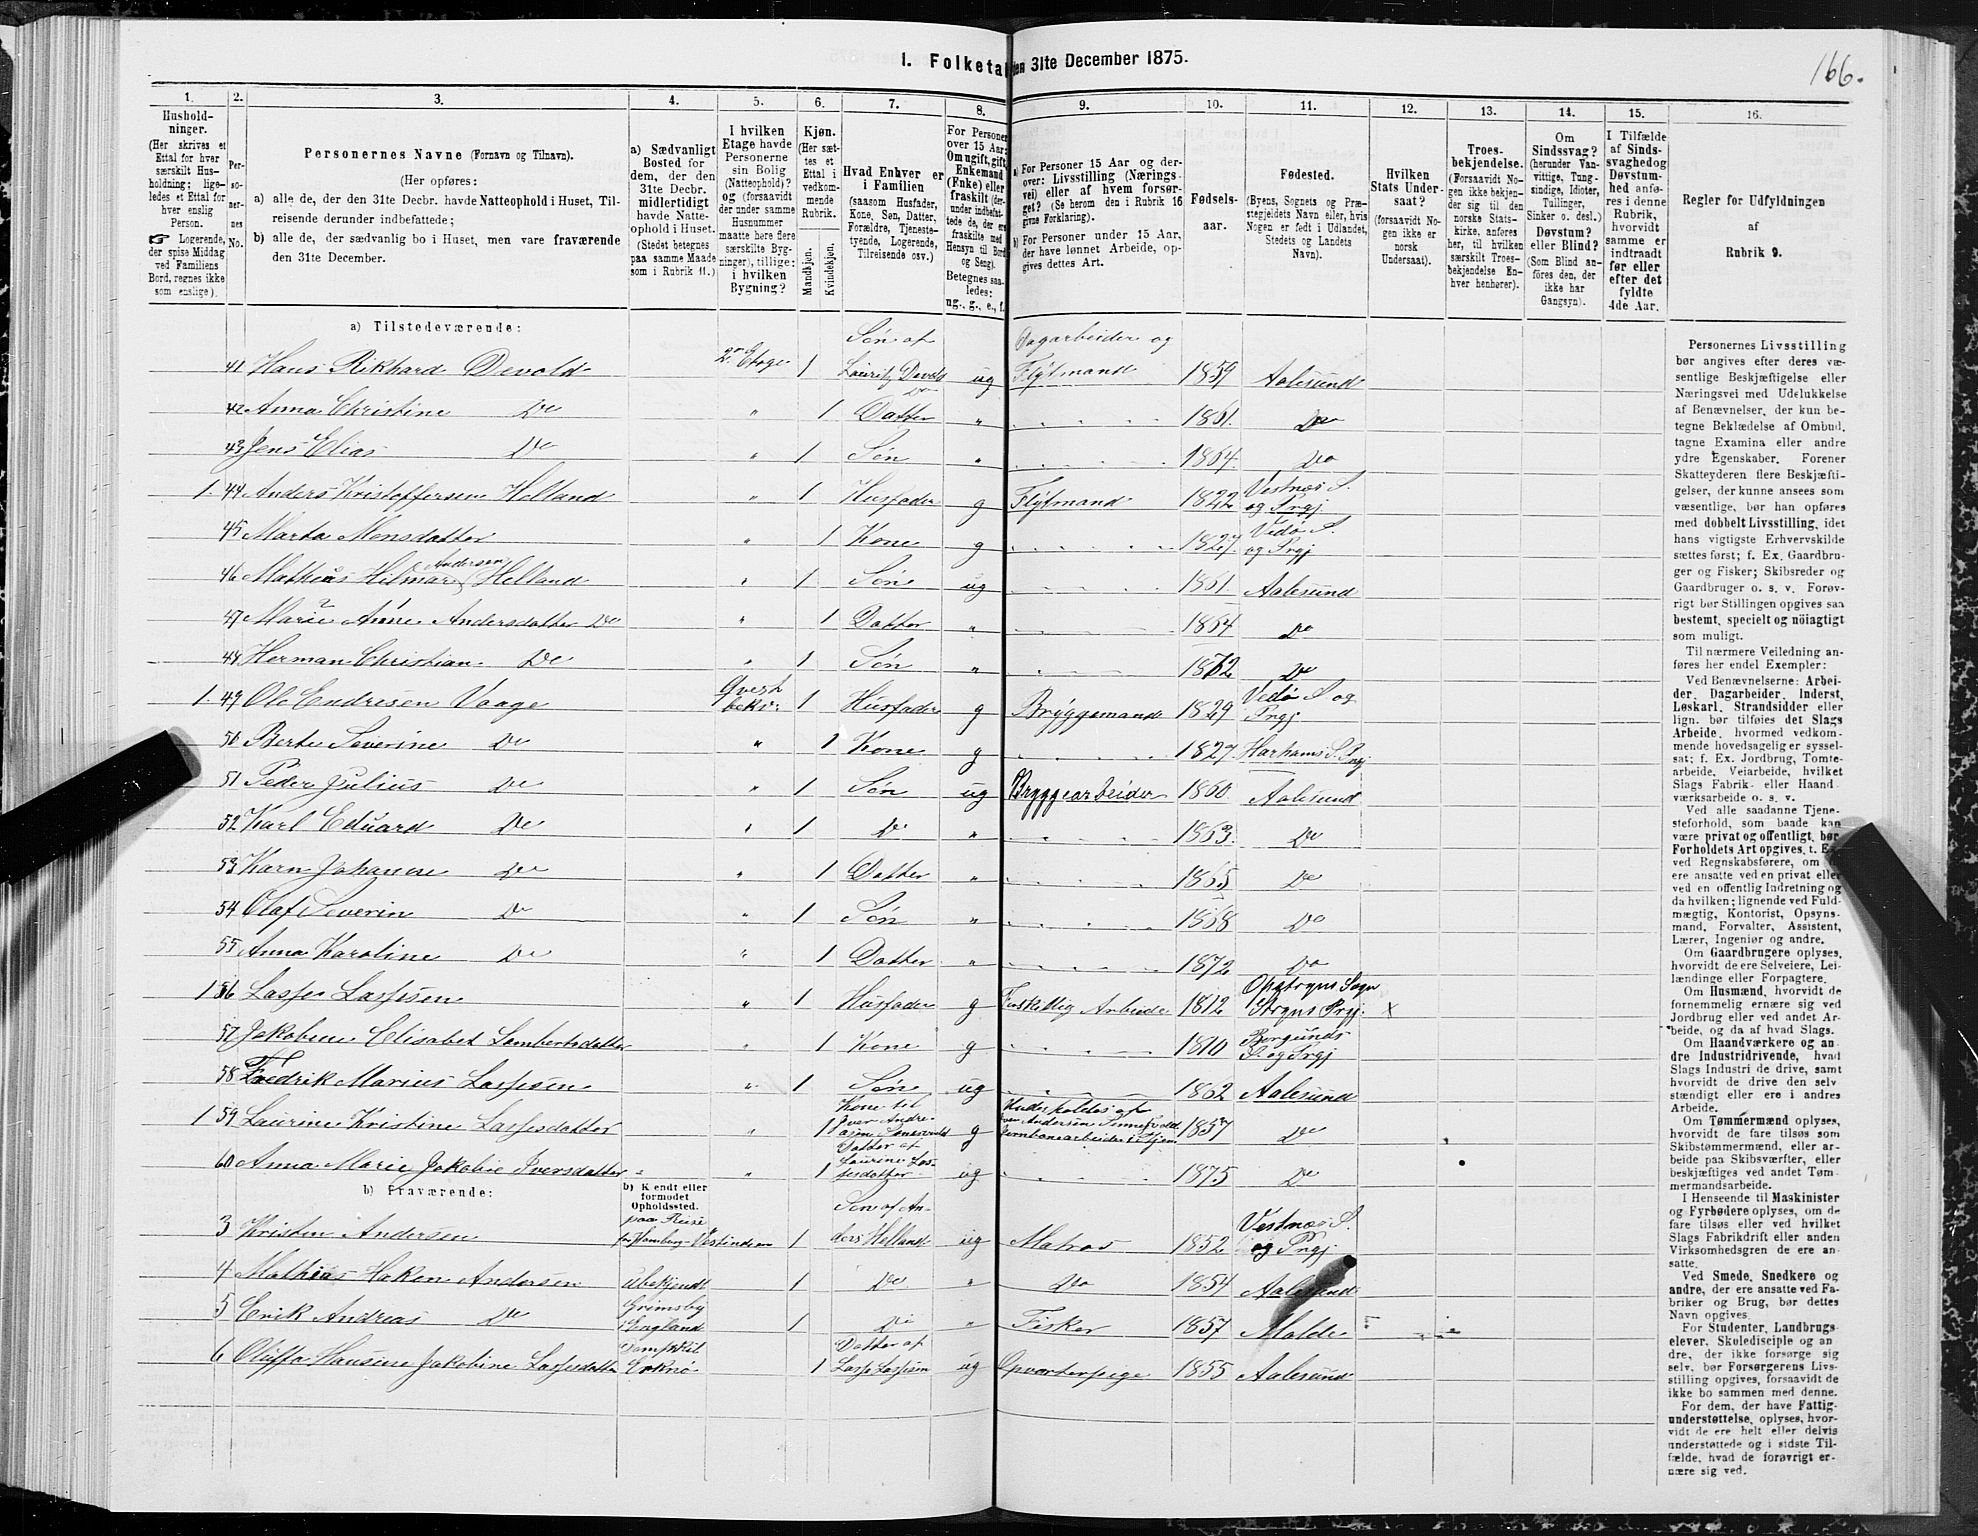 1. Folketa
den 31te December 1875.
166.
1.
2.
3.
4.
5.
6.
7.
8.
9.
10.
11.
12.
13.
14.
15.
16.
Hushold-
ninger.
(Her skrives et
Ettal for hver
særskilt Hus-
holdning; lige-
ledes et Ettal for
hver enslig
Person.
☞ Logerende,
der spise Middag
ved Familiens
Bord, regnes ikke
som enslige).
Per-
so-
ner-
nes
No.
Personernes Navne (Fornavn og Tilnavn).
(Her opføres:
a) alle de, der den 31te Decbr. havde Natteophold i Huset, Til-
reisende derunder indbefattede;
b) alle de, der sædvanlig bo i Huset, men vare fraværende
den 31te December.
a) Sædvanligt
Bosted for
dem, der den
31te Decbr.
midlertidigt
havde Natte-
ophold i Huset.
(Stedet betegnes
paa samme Maade
som i Rubrik 11.)
I hvilken
Etage havde
Personerne
sin Bolig
(Natteophold)?
og (forsaavidt
der under samme
Husnummer
maatte høre flere
særskilte Byg-
ninger), tillige:
i hvilken
Bygning?
Kjøn.
(Her sæt-
tes et
Ettal i
vedkom-
mende
Rubrik.
Mandkjøn.
Kvindekjøn.
Hvad Enhver er
i Familien
(saasom Husfader,
Kone, Søn, Datter,
Forældre, Tjeneste-
tyende, Logerende,
Tilreisende osv.)
For Personer
over 15 Aar:
Om ugift, gift,
Enkemand
(Enke) eller
fraskilt (der-
under indbefat-
tede de, der ere
fraskilte med
Hensyn til Bord
og Seng).
Betegnes saa-
ledes:
ug., g., e., f.
a) For Personer 15 Aar og der-
over: Livsstilling (Nærings-
vei) eller af hvem forsør-
get? (Se herom den i Rubrik 16
givne Forklaring).
b) For Personer under 15 Aar,
der have lønnet Arbeide, op-
gives dettes Art.
Fødsels-
aar.
Fødested.
(Byens, Sognets og Præ-
stegjeldets Navn eller, hvis
Nogen er født i Udlandet,
Stedets og Landets
Navn).
Hvilken
Stats Under-
saat?
(forsaavidt No-
gen ikke er
norsk
Undersaat).
Troes-
bekjendelse.
(Forsaavidt No-
gen ikke bekjen-
der sig til den
norske Stats-
kirke, anføres
her, til hvilken
særskilt Troes-
bekjendelse En-
hver henhører).
Om
Sindssvag?
(herunder Van-
vittige, Tung-
sindige, Idioter,
Tullinger,
Sinker o. desl.)
Døvstum?
eller Blind?
(Som Blind an-
føres den, der
ikke har
Gangsyn).
I Tilfælde
af Sinds-
svaghed og
Døvstum-
hed anfø-
res i denne
Rubrik,
hvorvidt
samme er
indtraadt
før eller
efter det
fyldte
4de Aar.
Regler for Udfyldningen
af
Rubrik 9.
a) Tilstedeværende:
41 Hans Rikhard Devold 2en Etage 1 Søn af Lauritz Devold ug Dagarbeider og Flytmand 1859 Aalesund
42 Anna Christine Do " 1 Datter " 1861. Do
43 Jens Elias Do " 1 Søn " 1864. Do
1. 44 Anders Kristoffersen Helland " 1 Husfader g Flytmand 1822 Vestnes S. og Prgj
45 Marta Monsdatter " 1 Kone g 1827. Vedø S. og Prgj
46 Mathias Hilmar Andersen Helland " 1 Søn ug 1861. Aalesund
47 Marie Anne Andersdatter Do " 1 Datter " 1864 Do
48 Herman Christian Do " 1 Søn " 1872 Do
1. 49 Ole Endresen Vaage Qvist bekv: 1 Husfader g Bryggemand 1829 Vedø S og Prgj.
50 Berte Severine Do " 1 Kone g 1827 Harhams S. Prgj
51 Peder Julius Do " 1 Søn ug Bryggearbeider 1860 Aalesund
52 Karl Eduard Do " 1 Do " 1863. Do
53 Karn Johanne Do " 1 Datter " 1865 Do
54 Olaf Severin Do " 1 Søn " 1868 Do
55 Anna Karoline Do " 1 Datter " 1872 Do
1 56 Lasse Lassesen " 1 Husfader g Forskellig Arbeide 1812 Opstryns Sogn Stryns Prgj. x
57 Jakobine Elisabet Lambertsdatter 1 Kone g 1810 Borgunds S. og Prgj
58 Fredrik Marius Lassesen " 1 Søn ug 1862 Aalesund
1 59 Laurine Kristine Lassesdatter " 1 Kone til Iver Andre- g Underholdes af Iver Andersen Jernbanearbeider 1857 Do
60 Anna Marie Jakobie Iversdatter " " 1 Datter af Laurine Las- sesdatter ug 1875 Do
b) Fraværende:
b) Kendt eller
formodet
Opholdssted.
3 Kristen Andersen paa Reise fra Hamburg-Vestindien 1 Søn af An- ders Helland ug Matros 1852 Vestnes S. og Prgj
4 Mathias Haken Andersen Ubekjendt 1 Do " Do 1854 Aalesund
5 Erik Andreas Do Grimsby i England 1 Do " Fisker 1857 Molde
6 Oluffa Hansine Jakobine Lassesdatter 1 Datter af Lasse Lassesen ug Opvarterpige 1855 Aalesund
Personernes Livsstilling
bør angives efter deres væ-
sentlige Beskjæftigelse eller
Næringsvei med Udelukkelse
af Benævnelser, der kun be-
tegne Beklædelse af Ombud,
tagne Examina eller andre
ydre Egenskaber. Forener
Skatteyderen flere Beskjæfti-
gelser, der kunne ansees som
væsentlige, bør han opføres
med dobbelt Livsstilling, idet
hans vigtigste Erhvervskilde
sættes først; f. Ex. Gaardbru-
ger og Fisker; Skibsreder og
Gaardbruger o. s. v. Forøv-
rigt bør Stillingen opgives saa
bestemt, specielt og nöiagtigt
som muligt.
Til nærmere Veiledning an-
føres her endel Exempler:
Ved Benævnelserne: Arbei-
der, Dagarbeider, Inderst,
Løskarl, Strandsidder eller
lign. bør tilføies det Slags
Arbeide, hvormed vedkom-
mende hovedsagelig er syssel-
sat; f. Ex. Jordbrug, Tomte-
arbeide, Veiarbeide, hvilket
Slags Fabrik- eller Haand-
værksarbeide o. s. v.
Ved alle saadanne Tjene-
steforhold, som baade kan
være privat og offentligt, bør
Forholdets Art opgives, t. Ex.
ved Regnskabsførere, om
ere ansatte ved en privat eller
ved en offentlig Indretning og
da hvilken; lignende ved Fuld-
mægtig, Kontorist, Opsyns-
mand, Forvalter, Assistent,
Lærer, Ingeniør og andre.
Om Gaardbrugere oplyses,
hvorvidt de ere Selveiere, Lei-
lændinge eller Forpagtere.
Om Husmænd, hvorvidt de
fornemmelig ernære sig ved
Jordbrug eller ved andet Ar-
beide, og da af hvad Slags.
Om Haandværkere og an-
dre Industridrivende, hvad
Slags Industri de drive, samt
hvorvidt de drive den selv-
stændigt eller ere i andres
Arbeide.
Om Tømmermænd oplyses,
hvorvidt de fare tilsøs som
Skibstømmermænd, eller ar-
beide paa Skibsværfter, eller
beskjæftiges ved andet Tøm-
mermandsarbeide.
I Henseende til Maskinister
og Fyrbødere oplyses, om de
fare tilsøs eller ved hvilket
Slags Fabrikdrift eller anden
Virksomhedsgren de ere an-
satte.
Ved Smede, Snedkere og
andre, der ere ansatte ved Fa-
briker og Brug, bør dettes
Navn opgives.
For Studenter, Landbrugs-
elever, Skoledisciple og an-
dre, der ikke forsørge sig
selv, bør Forsørgerens Livs-
stilling opgives, forsaavidt de
ikke bo sammen med denne.
For dem, der have Fattig-
understøttelse, oplyses, hvor-
vidt de ere helt eller delvis
understøttede og i sidste Til-
fælde, hvad de forøvrigt er-
nære sig ved.